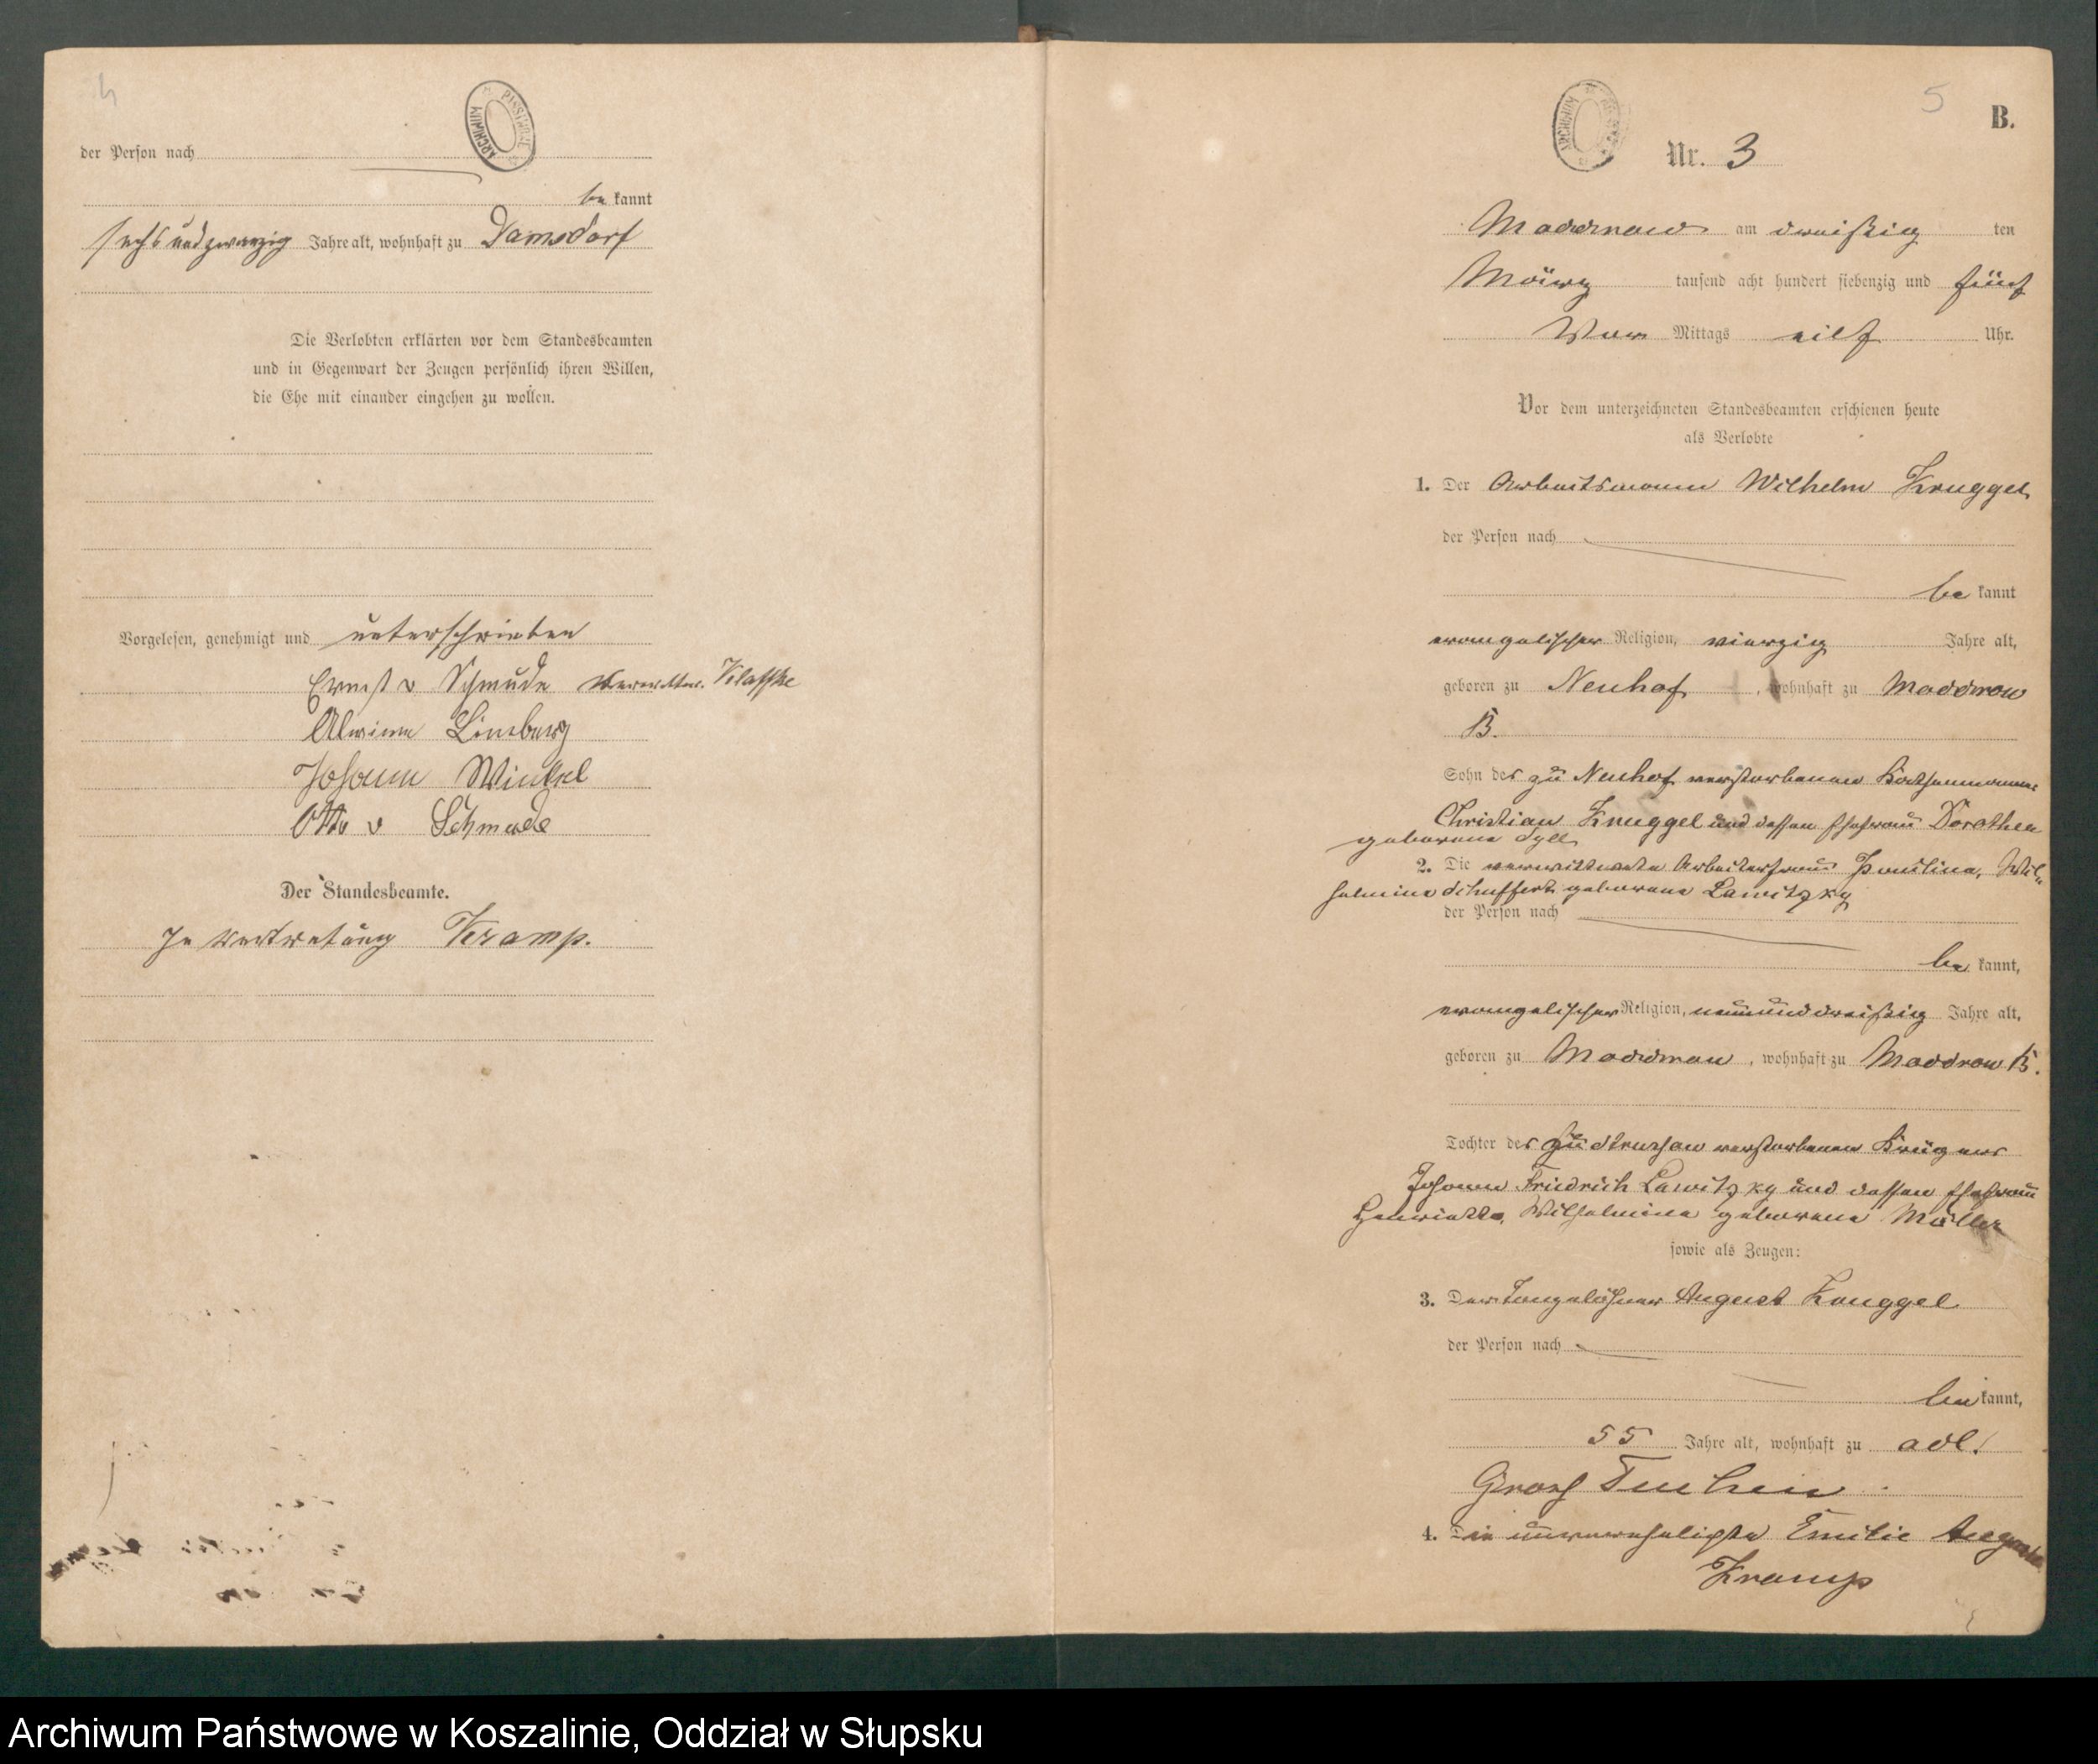 4
der Person nach
be kannt
sechsundzwanzig Jahre alt, wohnhaft zu Damsdorf
Die Verlobten erklärten vor dem Standesbeamten
und in Gegenwart der Zeugen persönlich ihren Willen,
die Ehe mit einander eingehen zu wollen.
Vorgelesen, genehmigt und unterschrieben
Ernst v Schmude
Alwine Linsburg
Johann Winkel
Otto v Schmude
Der Standesbeamte.
In Vertretung Kramp.
5
B.
ARCHIWUM
Nr. 3
Maddrow am dreißig ten
März tausend acht hundert siebenzig und fünf
Vor Mittags eilf Uhr.
Vor dem unterzeichneten Standesbeamten erschienen heute
als Verlobte
1. Der Arbeitsmann Wilhelm Kruggel
der Person nach
be kannt
evangelischer Religion, vierzig Jahre alt,
geboren zu Neuhof, wohnhaft zu Maddrow
B.
Sohn des zu Neuhof verstorbenen
Christian Kruggel und dessen Ehefrau Dorothea
geborene Syll
2. Die verwittwete Arbeiterfrau Paulina, Wil-
helmine Schuffert geborene Lawitzky
der Person nach
be kannt,
evangelischer Religion, neununddreißig Jahre alt,
geboren zu Maddrow, wohnhaft zu Maddrow B.
Tochter des zu verstorbenen Krügers
Johann Friedrich Lawitzky und dessen Ehefrau
Henriette, Wilhelmine geborene Möller
sowie als Zeugen:
3. Der Tagelöhner August Kruggel
der Person nach
be kannt,
55 Jahre alt, wohnhaft zu adl.
Gross Tuchen
4. Die unverehelichte Emilie Auguste
Kramp
Archiwum Państwowe w Koszalinie, Oddział w Słupsku